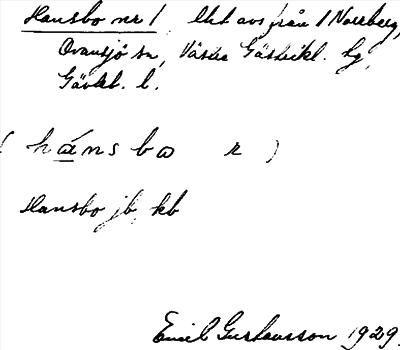 Hansbo nr 1, lht avs från 1 Norrberg,
Ovansjö sn, Väster Gästrikl. hg,
Gävleb. l.
( hánsbo r )
Hansbo jb, kb
Emil Gustavsson 1929.